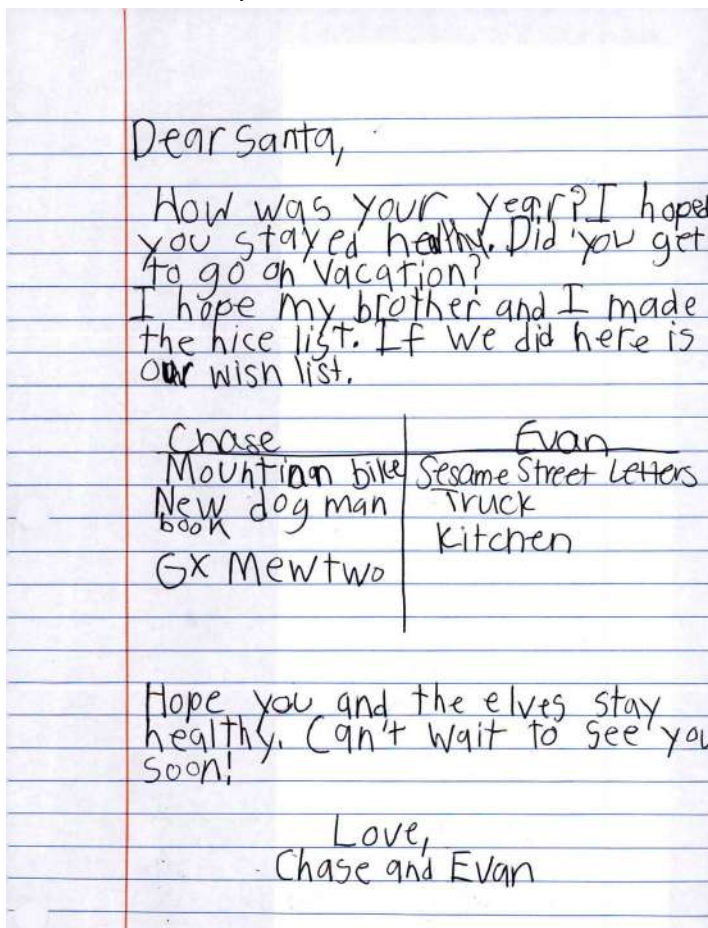 Dear Santa,
How was your year? I hope
you stayed healthy. Did you get
to go on vacation?
I hope my brother and I made
the nice list. If we did here is
our wish list.
Chase Evan
Mountian bike Sesame Street Letters
New dog man Truck
book
Kitchen
GX Mewtwo
Hope you and the elves stay
healthy. Can't wait to see you
soon!
Love,
Chase and Evan